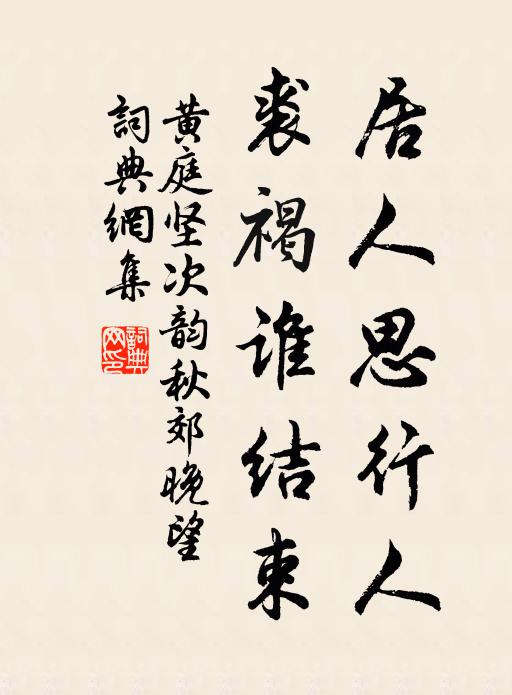 居人思行人
裘褐谁结束
黄庭坚次韵秋郊晚望
詞典網集
詞典網印